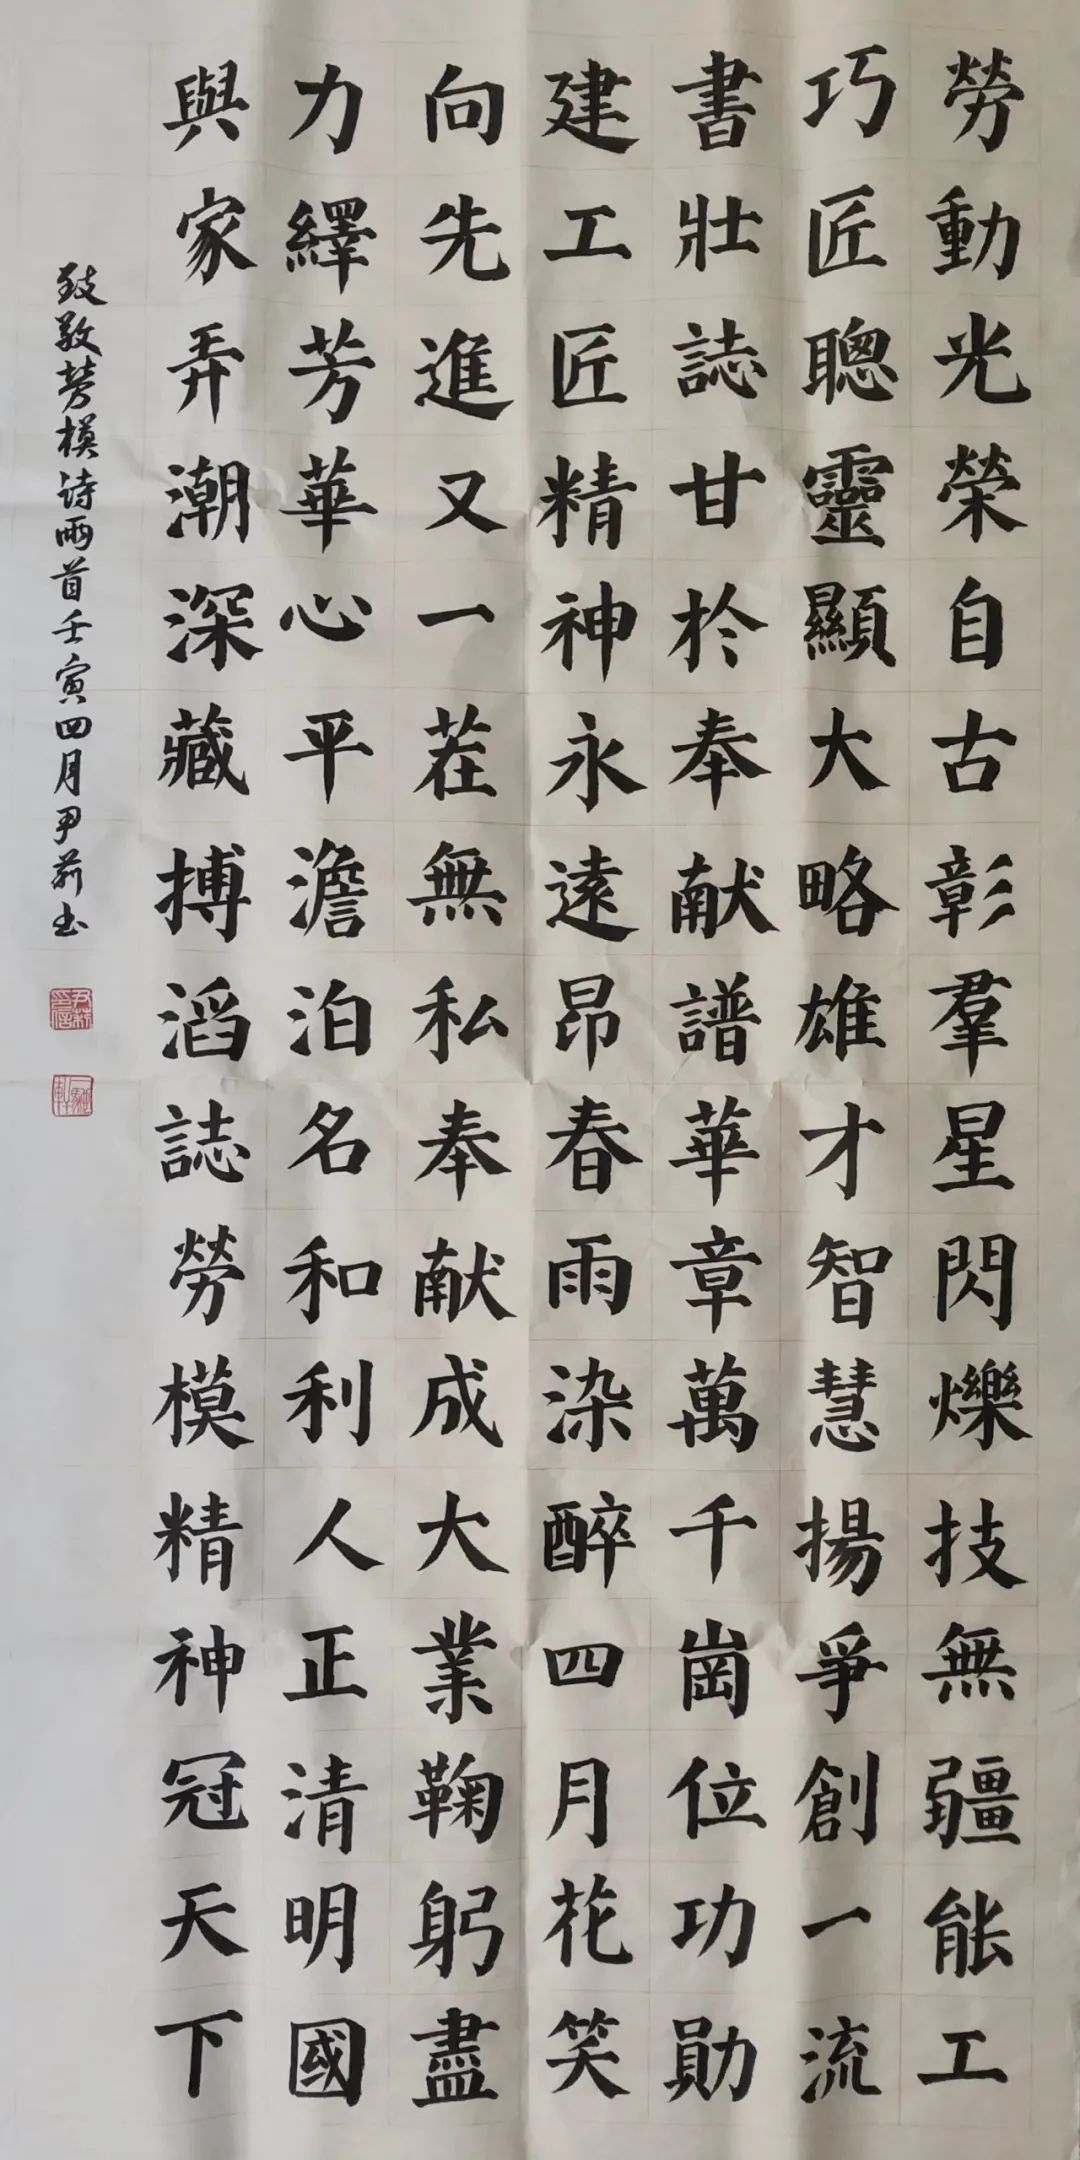 勞動光榮自古彰羣星閃爍技無疆能工
巧匠聰靈顯大略雄才智慧揚爭創一流
書壯誌甘於奉献譜華章萬千崗位功勛
建工匠精神永遠昂春雨染醉四月花笑
向先進又一茬無私奉献成大業鞠躬盡
力繹芳華心平澹泊名和利人正清明國
與家弄潮深藏搏滔誌勞模精神冠天下
致敬劳模诗两首壬寅四月尹莉书
尹莉印信